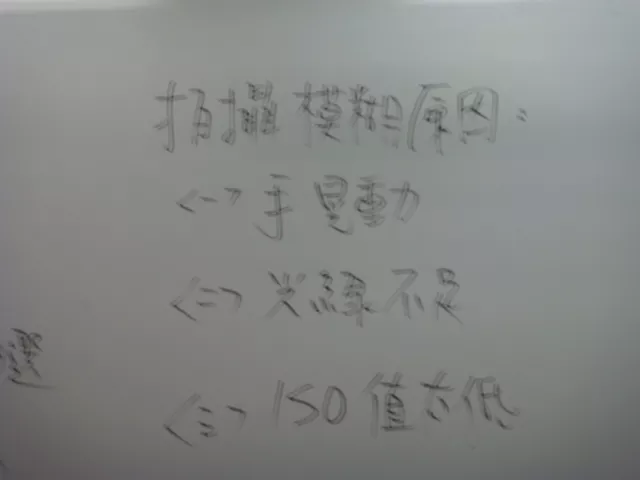 拍攝模糊原因:
<一> 手晃動
<二> 光線不足
<三> ISO 值太低